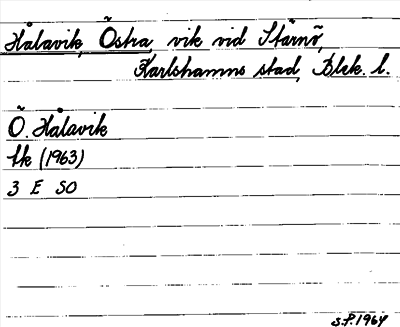 Hålavik, Östra, vik vid Stärnö,
Karlshamns stad, Blek. l.
Ö. Hålavik
Ek (1963)
3 E SO
S.P. 1964